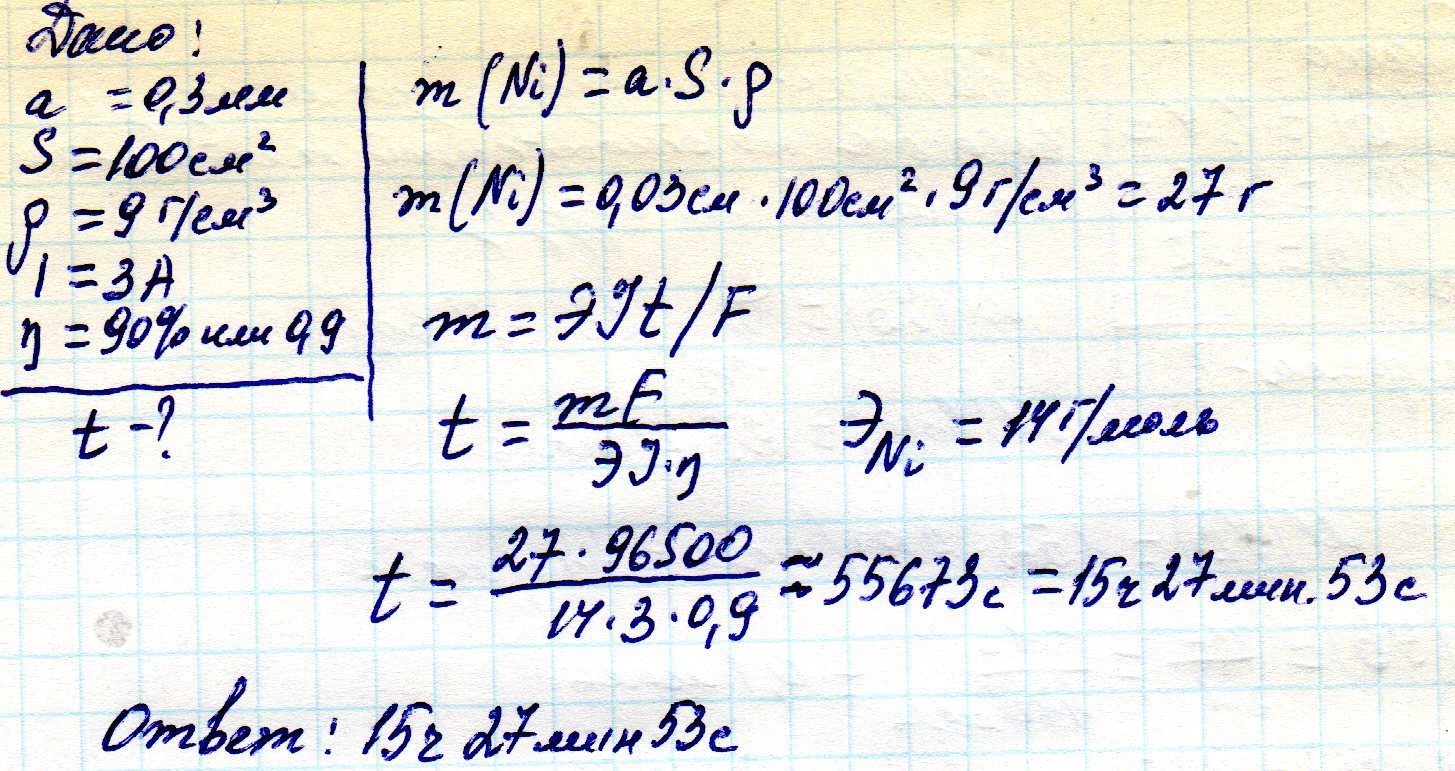 Дано:
a = 0,3 мм
S = 100 см²
ρ = 9 г/см³
I = 3 А
η = 90% или 0,9
t - ?
m (Ni) = a · S · ρ
m (Ni) = 0,03 см · 100 см² · 9 г/см³ = 27 г
m = ЭIt/F
t = mF / ЭI·η Э Ni = 14 г/моль
t = 27 · 96500 / 14 · 3 · 0,9 ≈ 55673 с = 15 ч 27 мин. 53 с
Ответ: 15 ч 27 мин 53 с